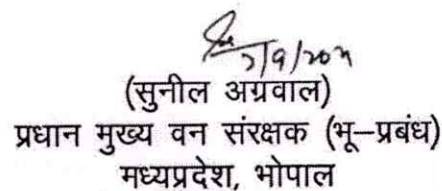 (सुनील अग्रवाल)
प्रधान मुख्य वन संरक्षक (भू–प्रबंध)
मध्यप्रदेश, भोपाल